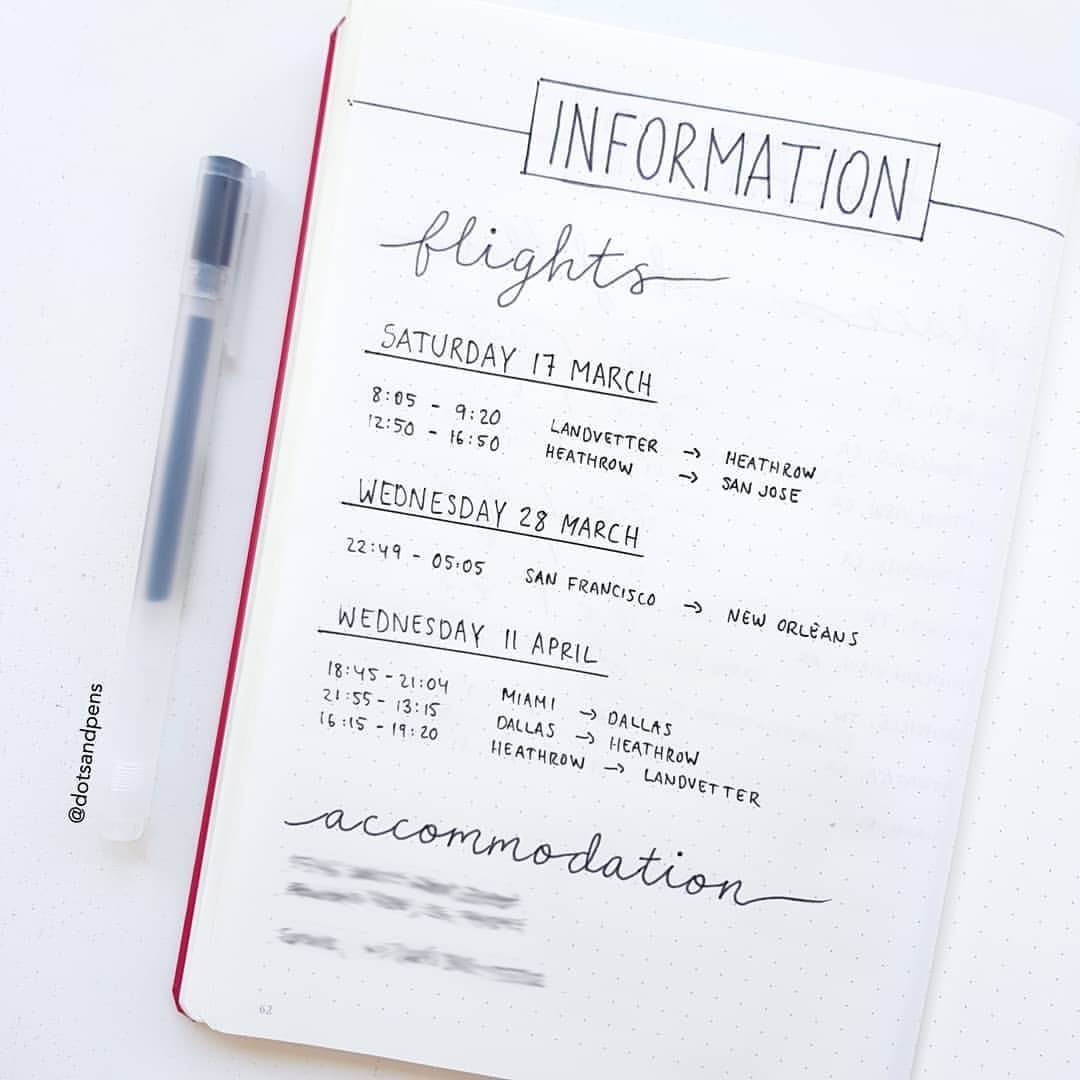 INFORMATION
flights
SATURDAY 17 MARCH
8:05 - 9:20 LANDVETTER → HEATHROW
12:50 - 16:50 HEATHROW → SAN JOSE
WEDNESDAY 28 MARCH
22:49 - 05:05 SAN FRANCISCO → NEW ORLEANS
WEDNESDAY 11 APRIL
18:45 - 21:04 MIAMI → DALLAS
21:55 - 13:15 DALLAS → HEATHROW
16:15 - 19:20 HEATHROW → LANDVETTER
accommodation
62
@dotsandpens